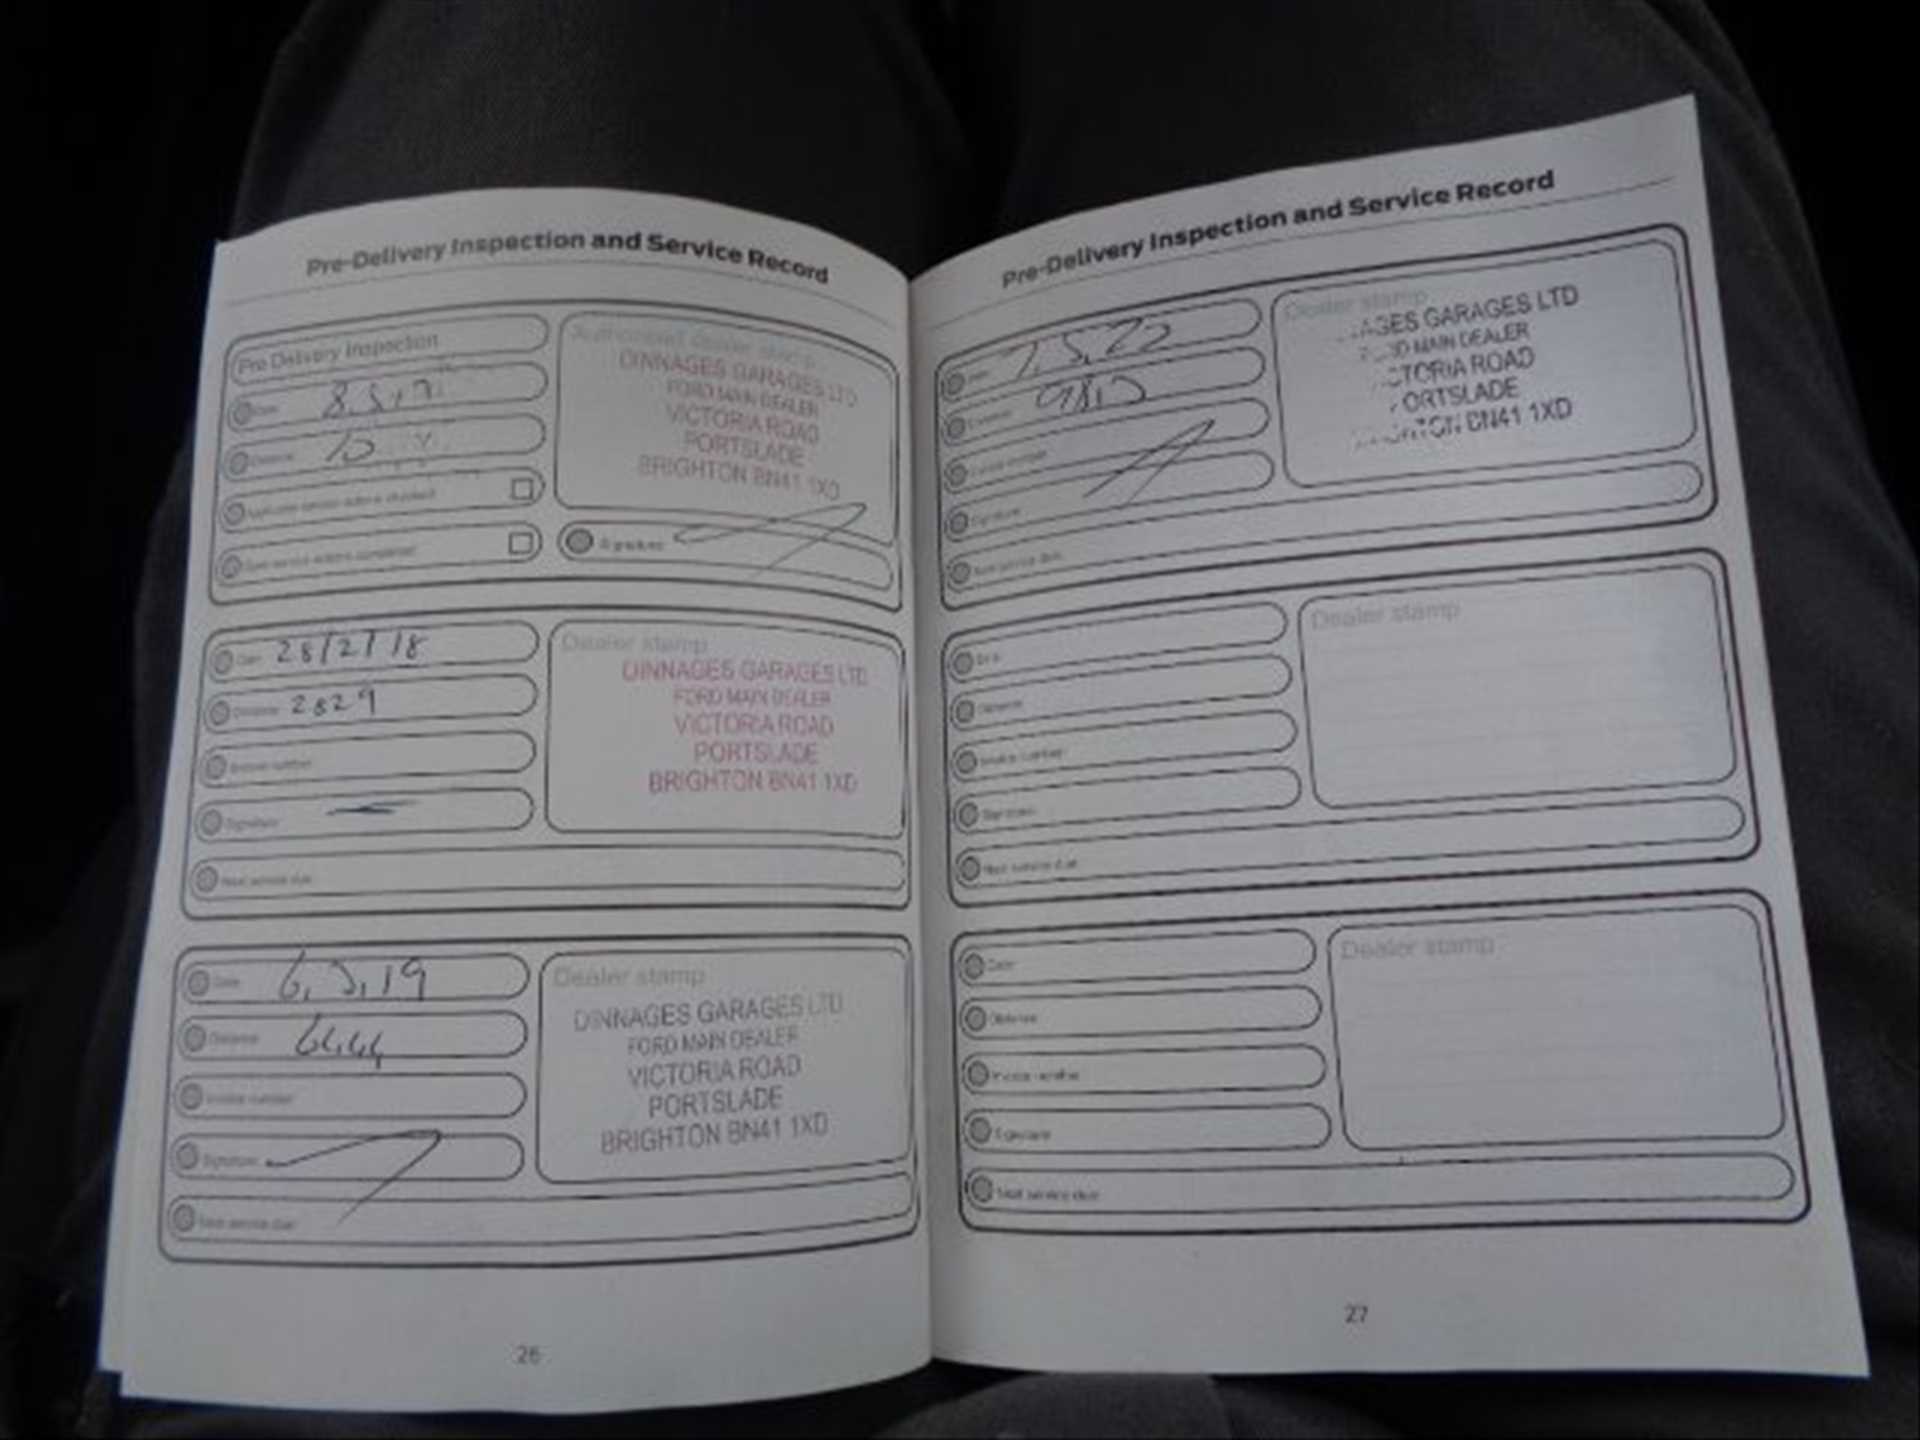 Pre-Delivery Inspection and Service Record
Pre Delivery Inspection
Date
10
Distance
Authorised dealer stamp
DINNAGES GARAGES LTD
FORD MAIN DEALER
VICTORIA ROAD
PORTSLADE
BRIGHTON BN41 1XD
Signature
Date 28/2/18
Distance 2829
Invoice number
Signature
Next service due
Dealer stamp
DINNAGES GARAGES LTD
FORD MAIN DEALER
VICTORIA ROAD
PORTSLADE
BRIGHTON BN41 1XD
Date
Distance
Invoice number
Signature
Next service due
Dealer stamp
DINNAGES GARAGES LTD
FORD MAIN DEALER
VICTORIA ROAD
PORTSLADE
BRIGHTON BN41 1XD
26
Pre-Delivery Inspection and Service Record
Distance
Invoice number
Signature
Next service due
Dealer stamp
GARAGES LTD
MAIN DEALER
ROAD
BN41 1XD
Date
Distance
Invoice number
Signature
Next service due
Dealer stamp
Date
Distance
Invoice number
Signature
Next service due
Dealer stamp
27